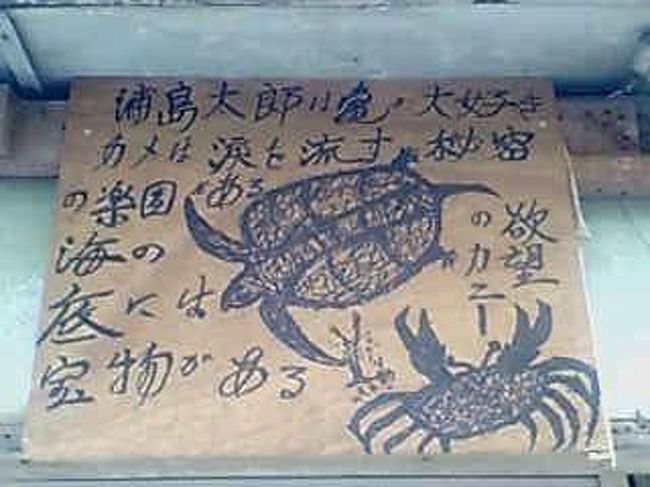 浦島太郎は亀が大好き
カメは涙を流す秘密
の楽園がある
海の
底には
宝物がある
欲望
のカニー